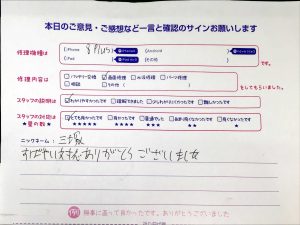 本日のご意見・ご感想など一言と確認のサインお願いします
修理機種は
iPhone 8 Plus
Android
iPad
その他
です。
修理内容は
バッテリー交換
画面修理
水没修理
パーツ修理
相談
その他
をしてもらいました。
スタッフの説明は
わかりやすかったです
理解できました
少しわかりにくかったです
難しかったです
スタッフの対応は
★星の数★
とても良かったです
良かったです
普通でした
あまり良くなかったです
良くなかったです
★★★★★
★★★★
★★★
★★
★
ニックネーム：三塚
ありがとうございました
機事に直って良かったです。ありがとうございました